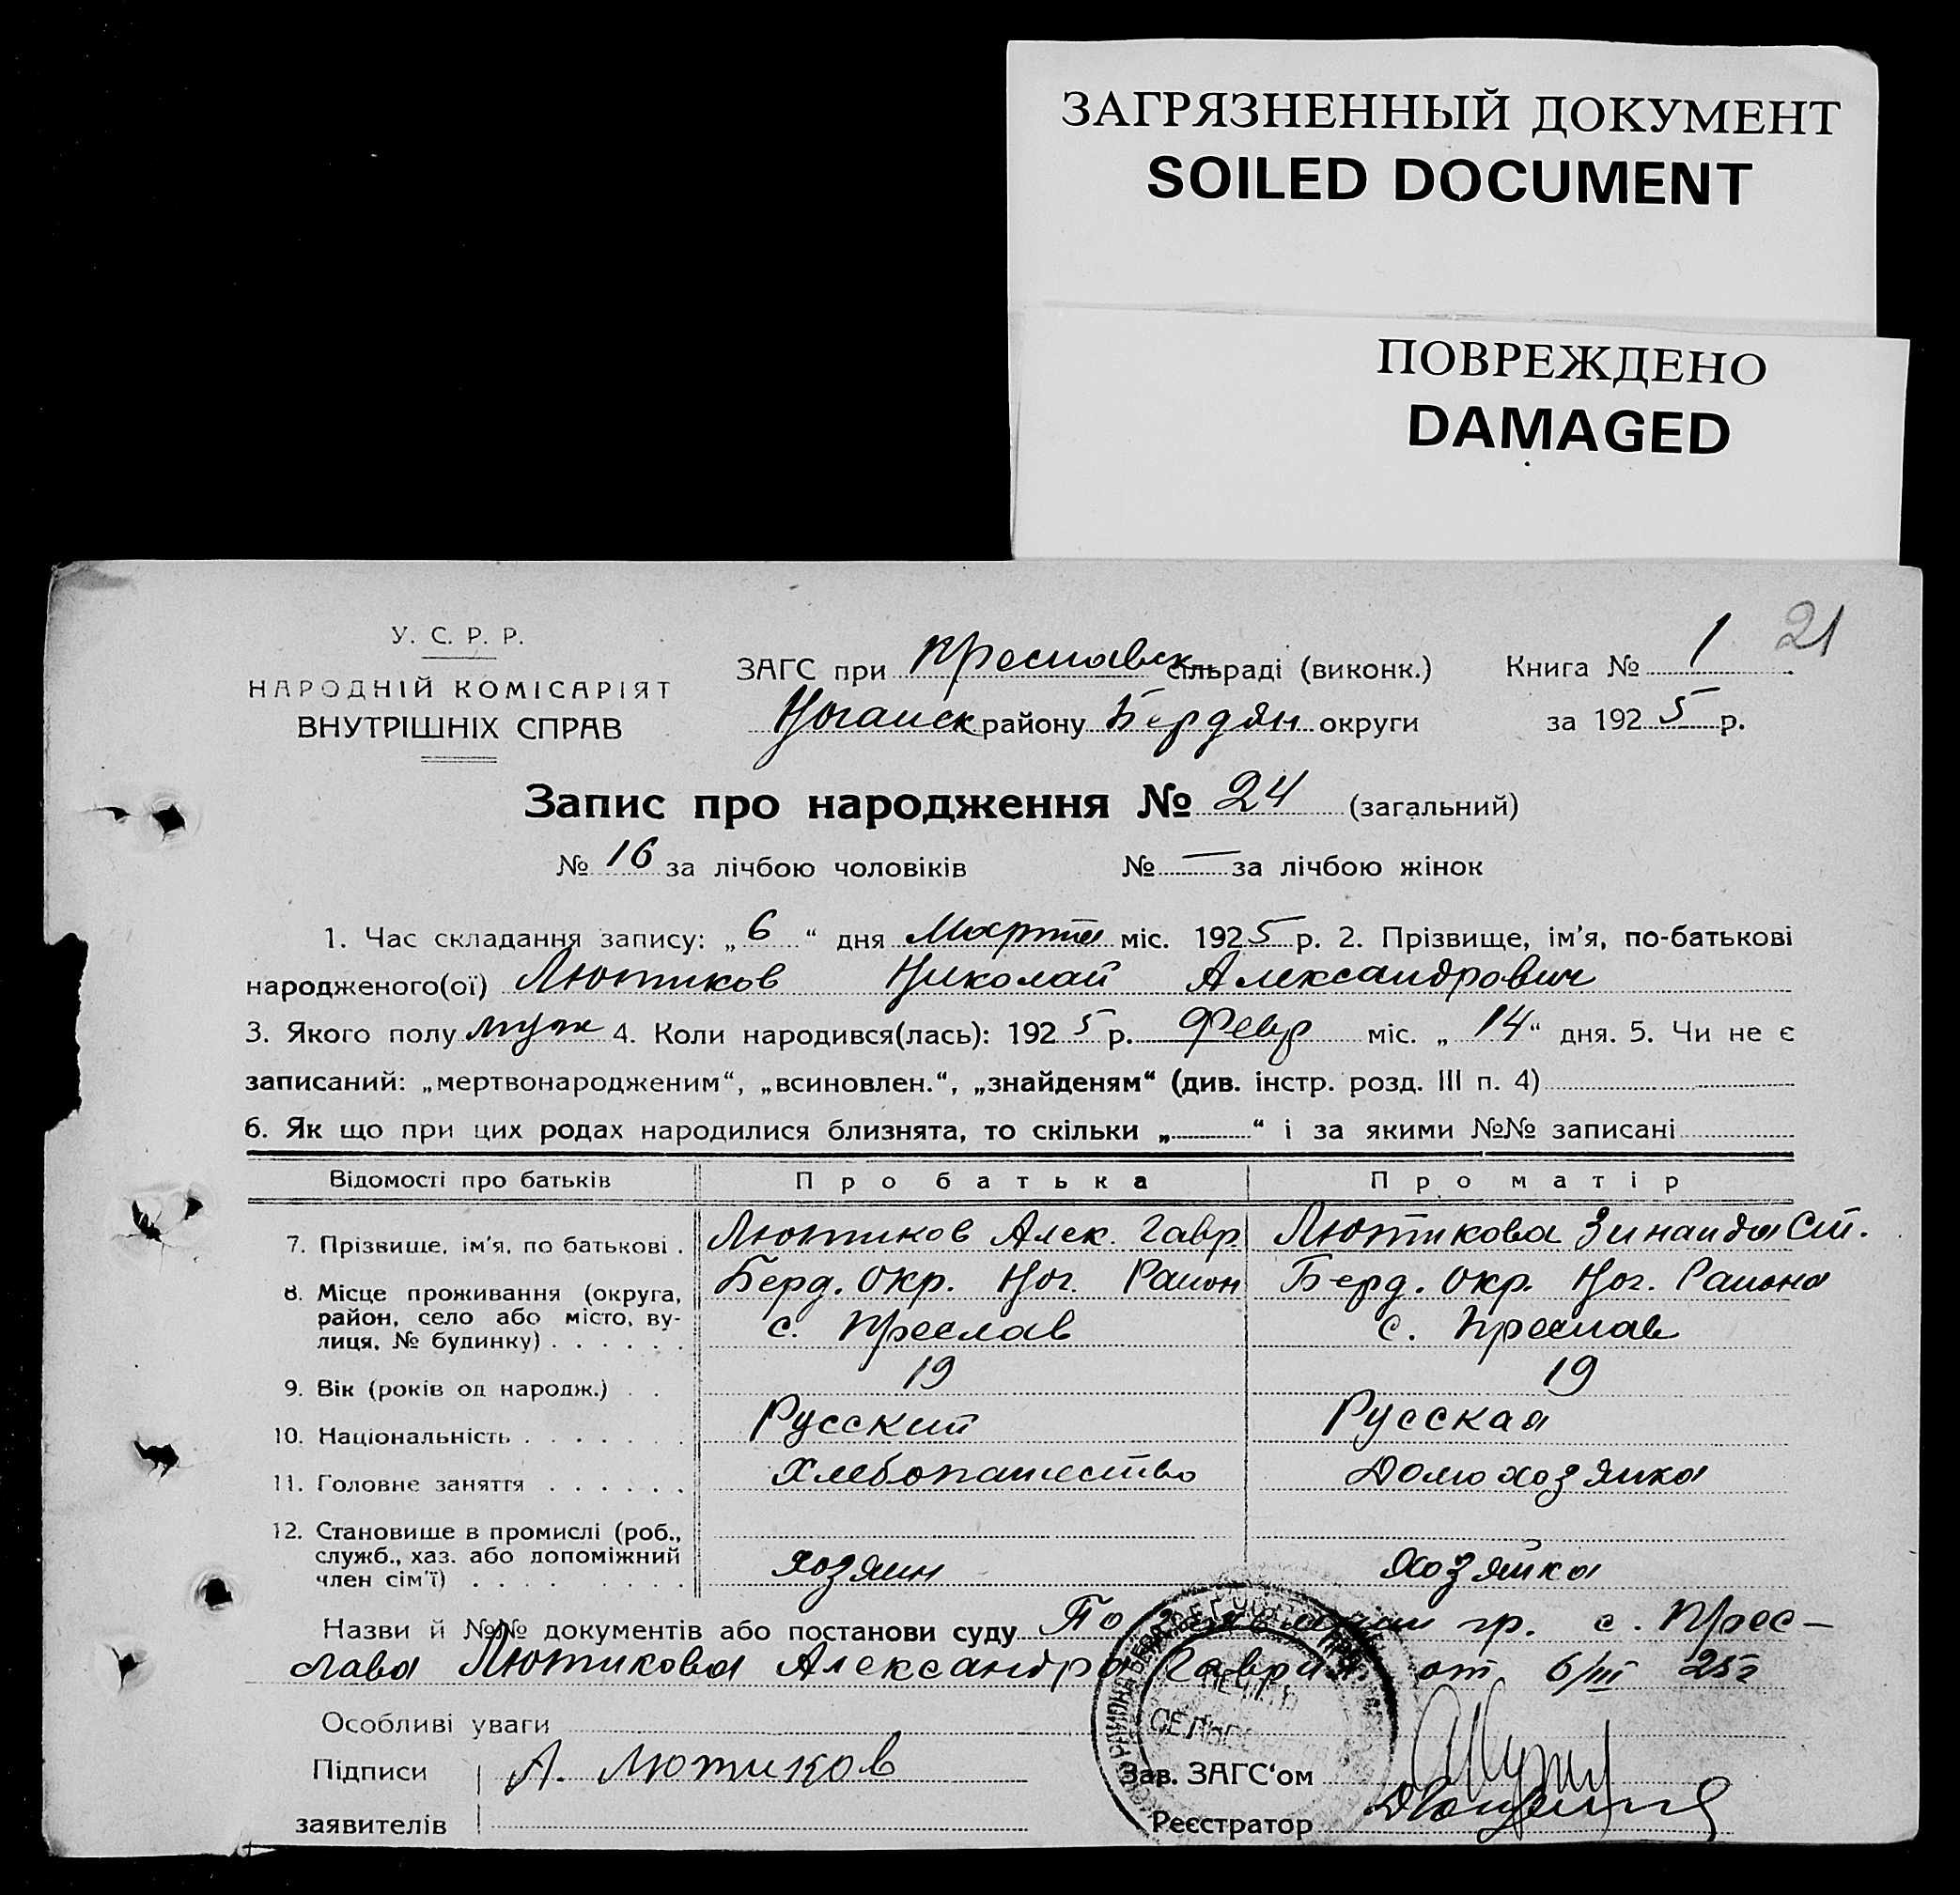 ЗАГРЯЗНЕННЫЙ ДОКУМЕНТ
SOILED DOCUMENT
ПОВРЕЖДЕНО
DAMAGED
У. С. Р. Р.
НАРОДНІЙ КОМІСАРІЯТ
ВНУТРІШНІХ СПРАВ
ЗАГС при Преславск сільраді (виконк.) Книга № 1 21
Ногайск району Бердян округи за 1925 р.
Запис про народження № 24 (загальний)
№ 16 за лічбою чоловіків № — за лічбою жінок
1. Час складання запису: „6“ дня Марта міс. 1925 р. 2. Прізвище, ім'я, по-батькові
народженого(ої) Лютиков Николай Александрович
3. Якого полу муж 4. Коли народився(лась): 1925 р. Февр міс. „14“ дня. 5. Чи не є
записаний: „мертвонародженим“, „всиновлен.“, „знайденям“ (див. інстр. розд. III п. 4)
6. Як що при цих родах народилися близнята, то скільки „ “ і за якими №№ записані
Відомості про батьків Про батька Про матір
7. Прізвище, ім'я, по батькові . Лютиков Алек. Гавр. Лютикова Зинаида Ст.
8. Місце проживання (округа, Берд. Окр. Ног. Район Берд. Окр. Ног. Района
район, село або місто, ву-
лиця, № будинку) . . . . . . с. Преслав с. Преслав
9. Вік (років од народж.) . . 19 19
10. Національність . . . . . . . Русский Русская
11. Головне заняття . . . . . . Хлебопашество Домохозяйка
12. Становище в промислі (роб.,
служб., хаз. або допоміжний
член сім'ї) . . . . . . . . . хозяин хозяйка
Назви й №№ документів або постанови суду По гр. с. Прес-
лава Лютикова Александра Гаврил. от 6/III 25г
Особливі уваги
Підписи А. Лютиков Зав. ЗАГС'ом
заявителів Реєстратор